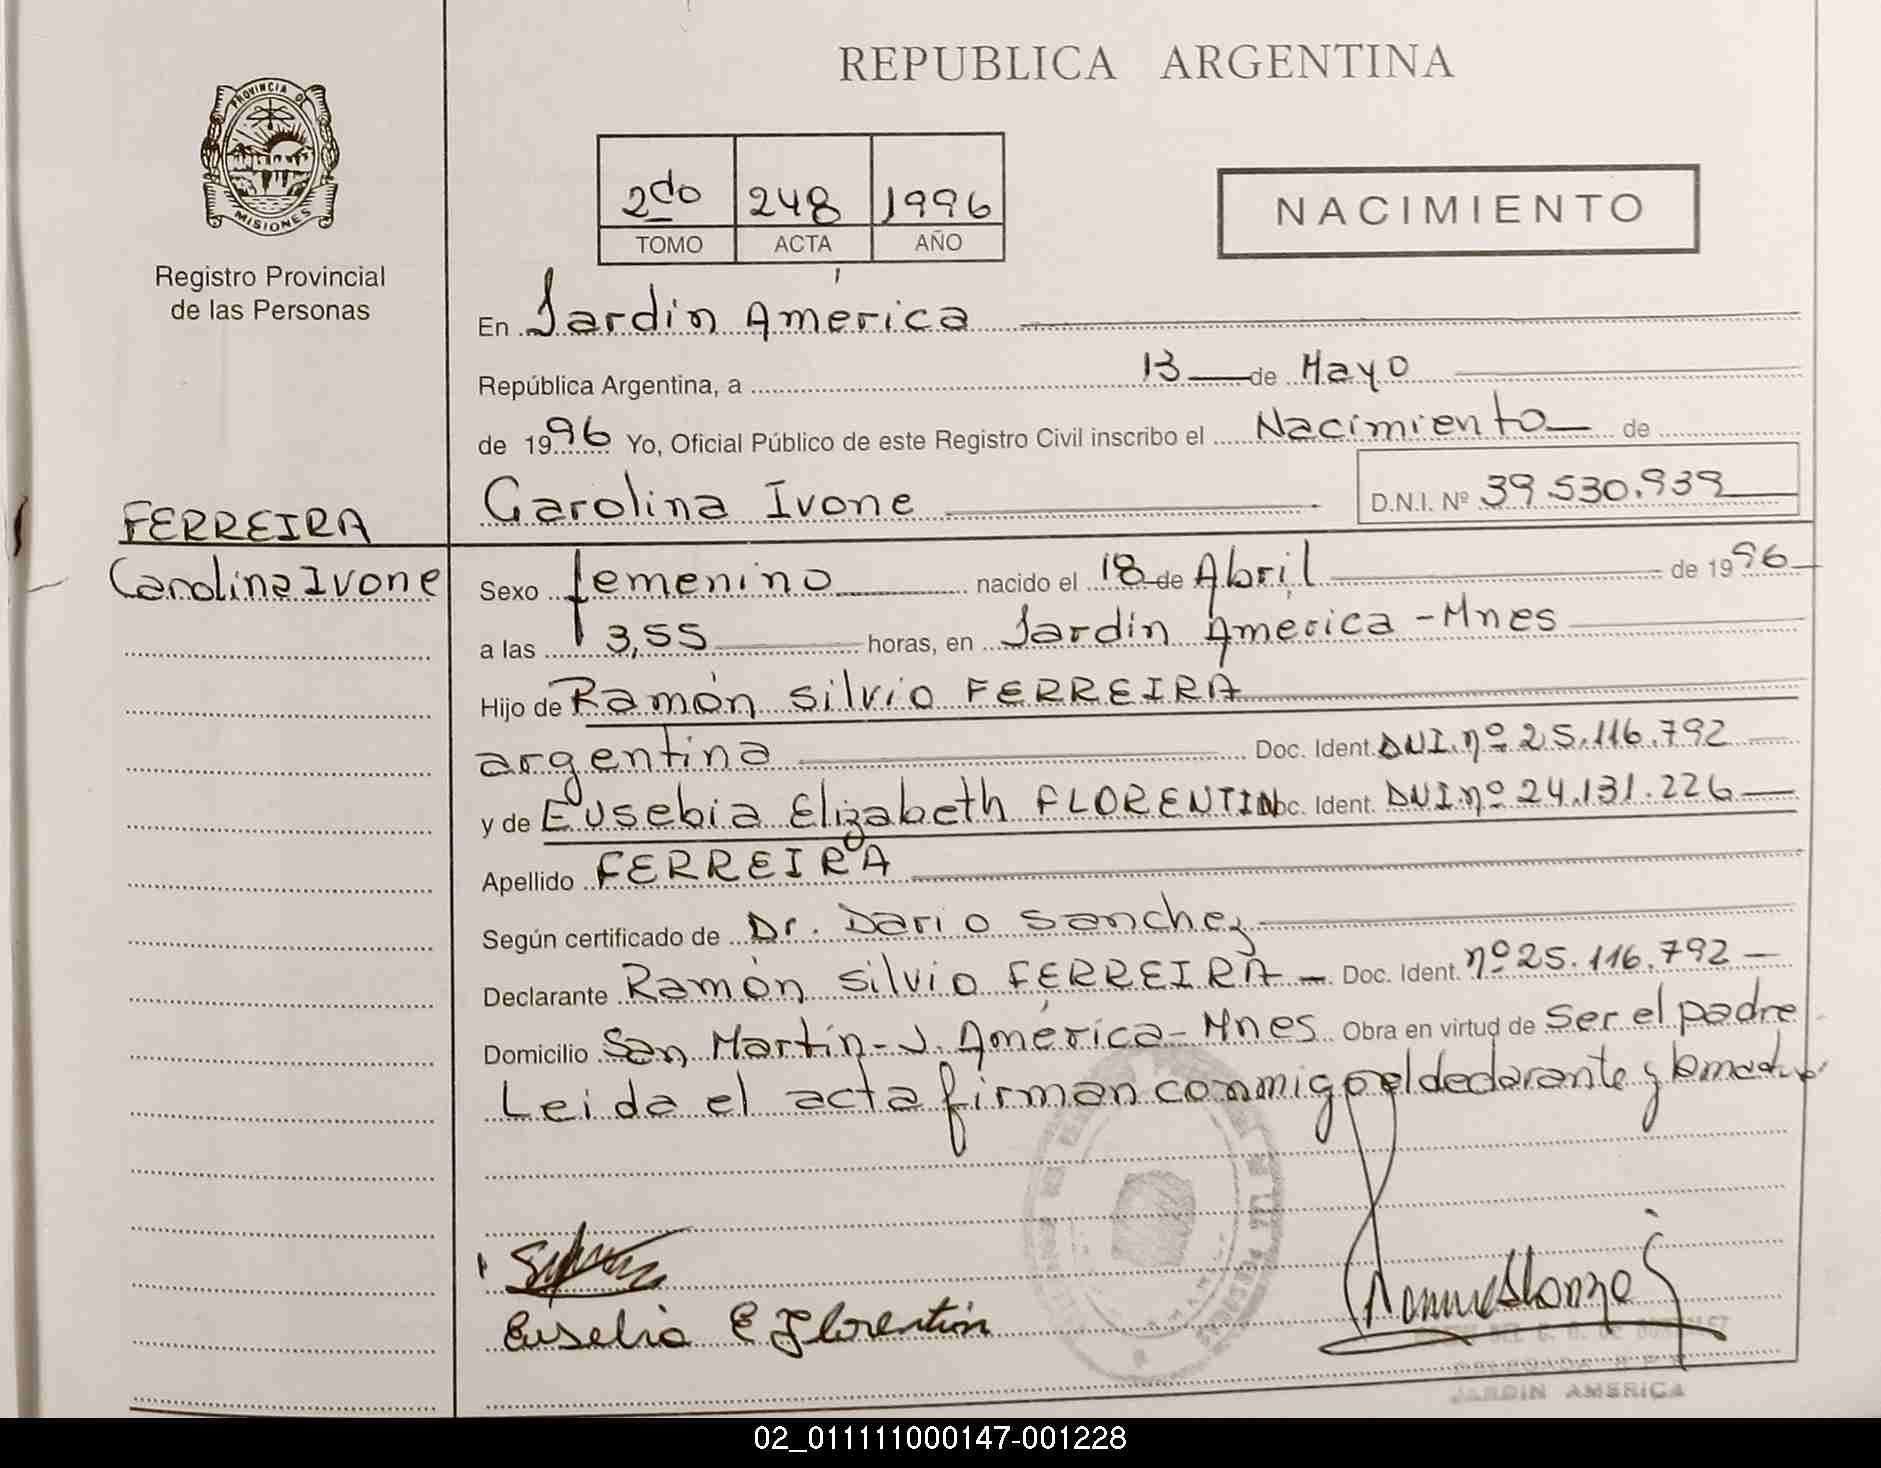 REPUBLICA ARGENTINA
PROVINCIA DE
MISIONES
Registro Provincial
de las Personas
2do 248 1996
TOMO ACTA AÑO
NACIMIENTO
En Jardín América
República Argentina, a 13 de Mayo
de 1996 Yo, Oficial Público de este Registro Civil inscribo el Nacimiento de
Carolina Ivone D.N.I. Nº 39.530.939
FERREIRA
Carolina Ivone
Sexo femenino nacido el 18 de Abril de 1996
a las 3,55 horas, en Jardín América - Mnes
Hijo de Ramón Silvio FERREIRA
argentina Doc. Ident. DNI. nº 25.116.792
y de Eusebia Elizabeth FLORENTIN Doc. Ident. DNI nº 24.131.226
Apellido FERREIRA
Según certificado de Dr. Dario Sanchez
Declarante Ramón Silvio FERREIRA - Doc. Ident. nº 25.116.792
Domicilio San Martín - J. América - Mnes Obra en virtud de Ser el padre
Leida el acta firman conmigo el declarante y la madre
Eusebia E Florentin
JARDIN AMERICA
02_011111000147-001228